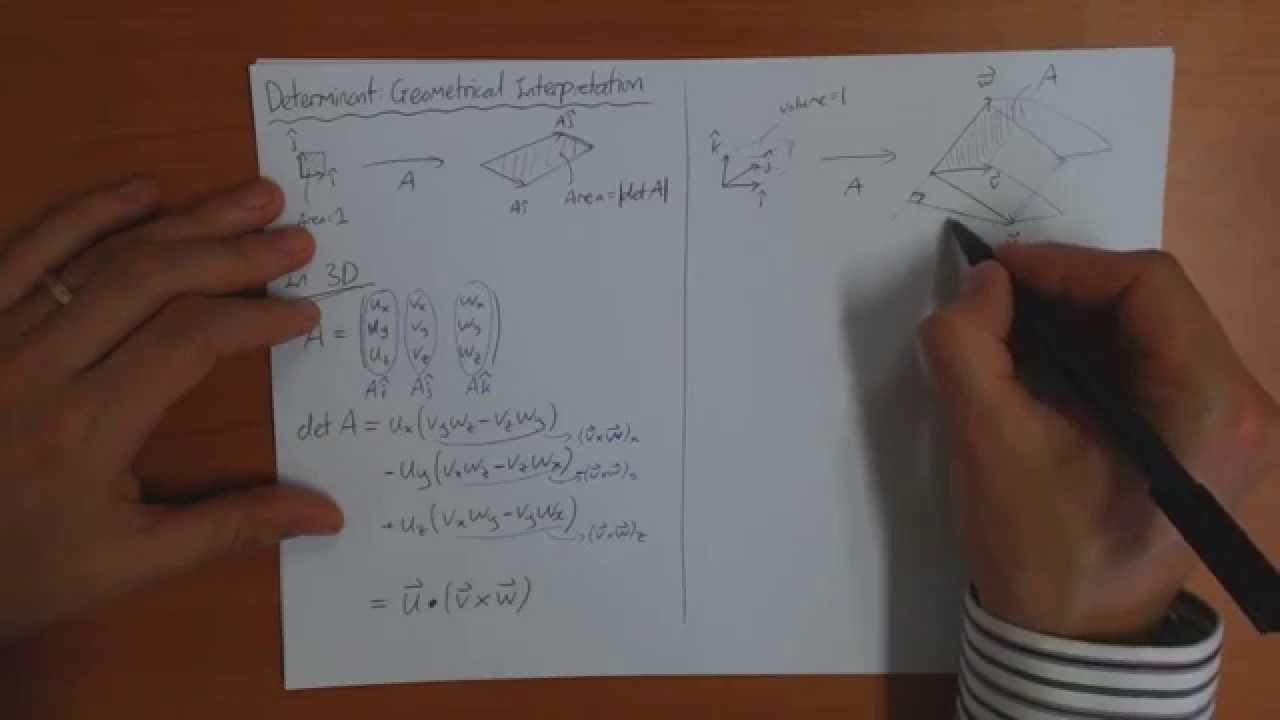 Determinant: Geometrical Interpretation
ĵ
î
Area=1
A
Aĵ
Aî
Area=|det A|
In 3D
A = (u_x v_x w_x
u_y v_y w_y
u_z v_z w_z)
Aî Aĵ Ak̂
det A = u_x(v_y w_z − v_z w_y) → (v⃗×w⃗)_x
− u_y(v_x w_z − v_z w_x) → (v⃗×w⃗)_y
+ u_z(v_x w_y − v_y w_x) → (v⃗×w⃗)_z
= u⃗•(v⃗×w⃗)
volume=1
k̂
ĵ
î
A
w⃗
A
v⃗